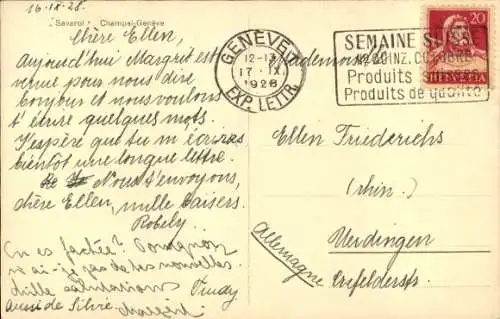 16-IX-28.
Savarol · Champel-Genève
Chère Ellen,
Aujourd'hui Margrit est
venue pour nous dire
bonjour et nous voulons
t'écrire quelques mots.
J'espère que tu m'écriras
bientôt une longue lettre.
Nous t'envoyons,
chère Ellen, mille baisers.
Robely
Es fachée? Pourquoi
n'ai-je pas de tes nouvelles.
Mille salutations Trudy
aussi de Silvie. Margrit
GENÈVE 1
12-13
17.IX.
1928
EXP. LETTR.
SEMAINE SUISSE
2e QUINZ. OCTOBRE
Produits
Produits de qualité
20
HELVETIA
Mademoiselle
Ellen Friederichs
(rhin.)
Uerdingen
Crefelderstr.
Allemagne